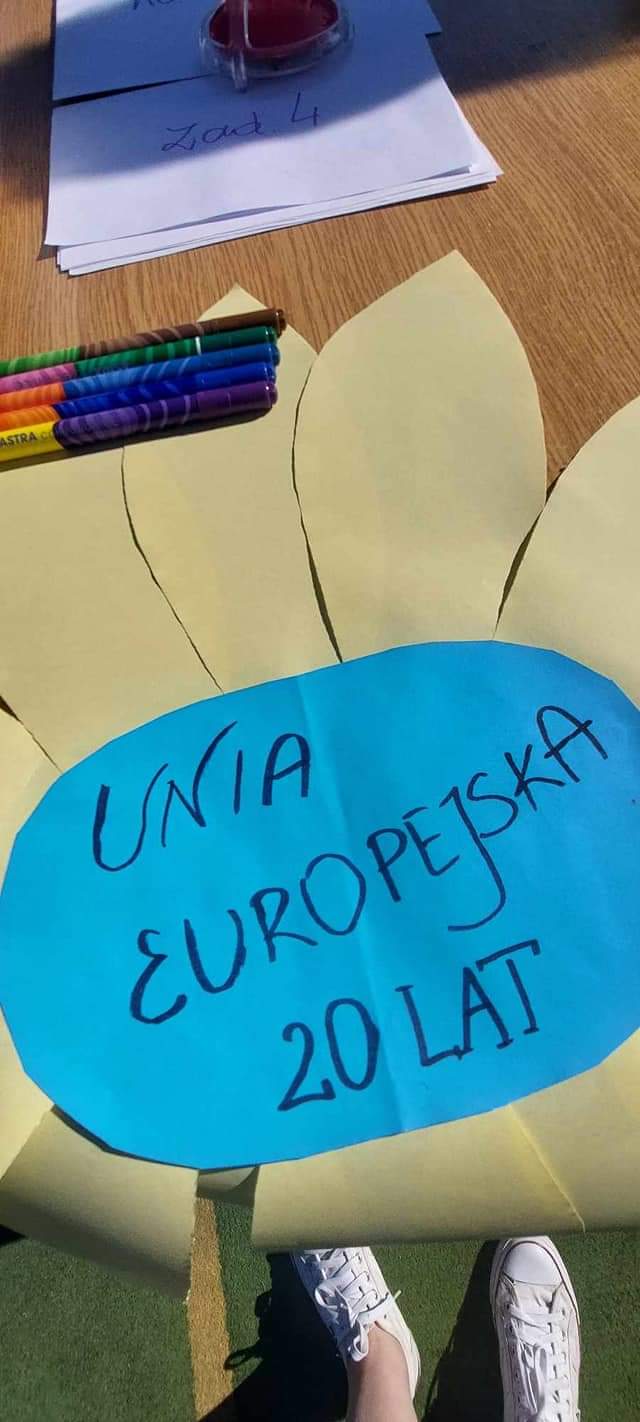 Zad. 4
ASTRA
UNIA
EUROPEJSKA
20 LAT